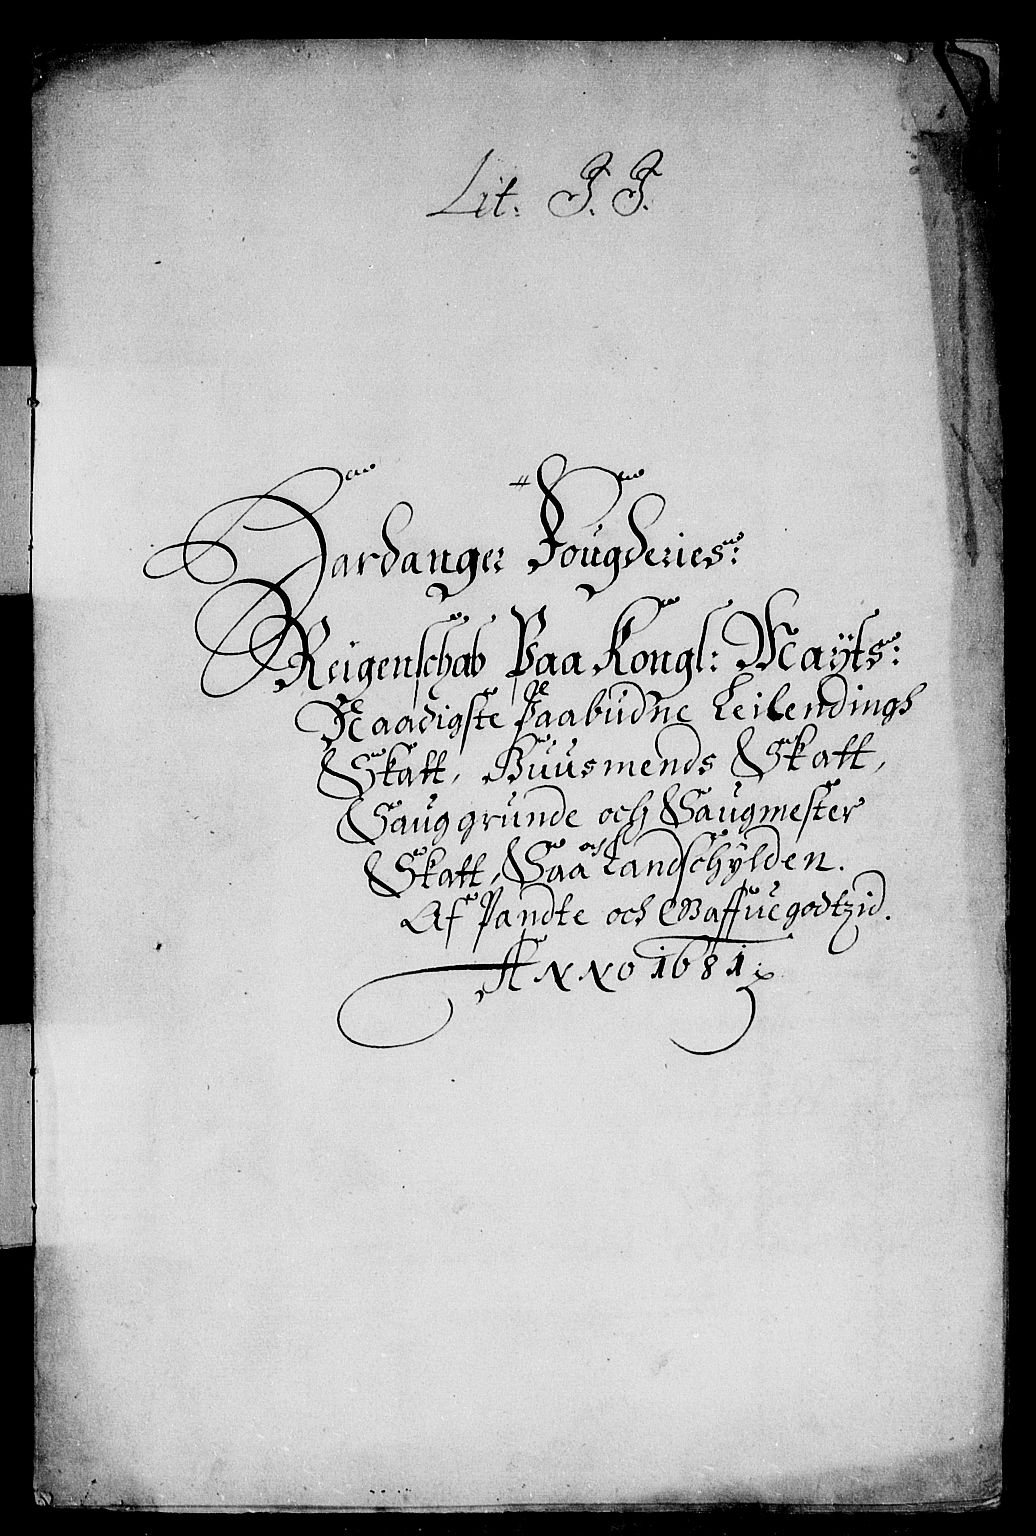 Lit: J. J.
Hardanger Fougderies:
Reigenschab Paa Kongl: Mayts:
Naadigste Paabudne Leilendings
Skatt, Huusmends Skatt,
Saug grunde och Saugmester
Skatt, Saa och Landschylden.
Af Pandte och Gaffue godtzid.
Anno 1681